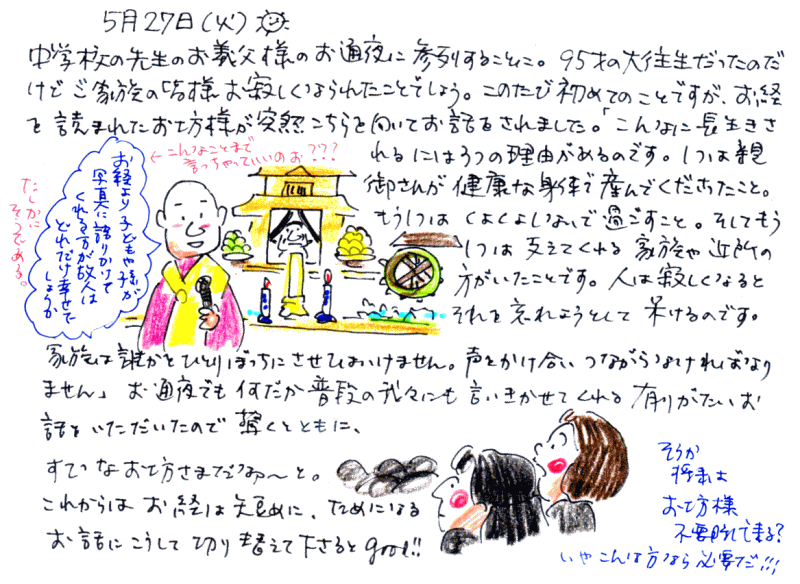 5月27日(火)
中学校の先生のお義父様のお通夜に参列することに。95才の大往生だったのだ
けどご家族の皆様お寂しくなられたことでしょう。このたび初めてのことですが、お経
を読まれたお坊様が突然こちらを向いてお話をされました。「こんなに長生きさ
れるには3つの理由があるのです。1つは親
御さんが健康な身体で産んでくださったこと。
もう1つはくよくよしないで過ごすこと。そしてもう
1つは支えてくれる家族や近所の
方がいたことです。人は寂しくなると
それを忘れようとして呆けるのです。
家族は誰かをひとりぼっちにさせてはいけません。声をかけ合いつながらなければなり
ません」お通夜でも何だか普段の我々にも言いきかせてくれる有りがたいお
話をいただいたので驚くとともに、
すてきなお坊さまだなあ〜と。
これからはお経は短めに、ためになる
お話にこうして切り替えて下さるとgood!!
←こんなことまで
言っちゃっていいのお???
お経より子どもや孫が
写真に語りかけて
くれる方が故人は
どれだけ幸せで
しょうか
たしかに
そうである。
そうか
将来は
お坊様
不要説て来る?
いやこんな方なら必要だ!!!